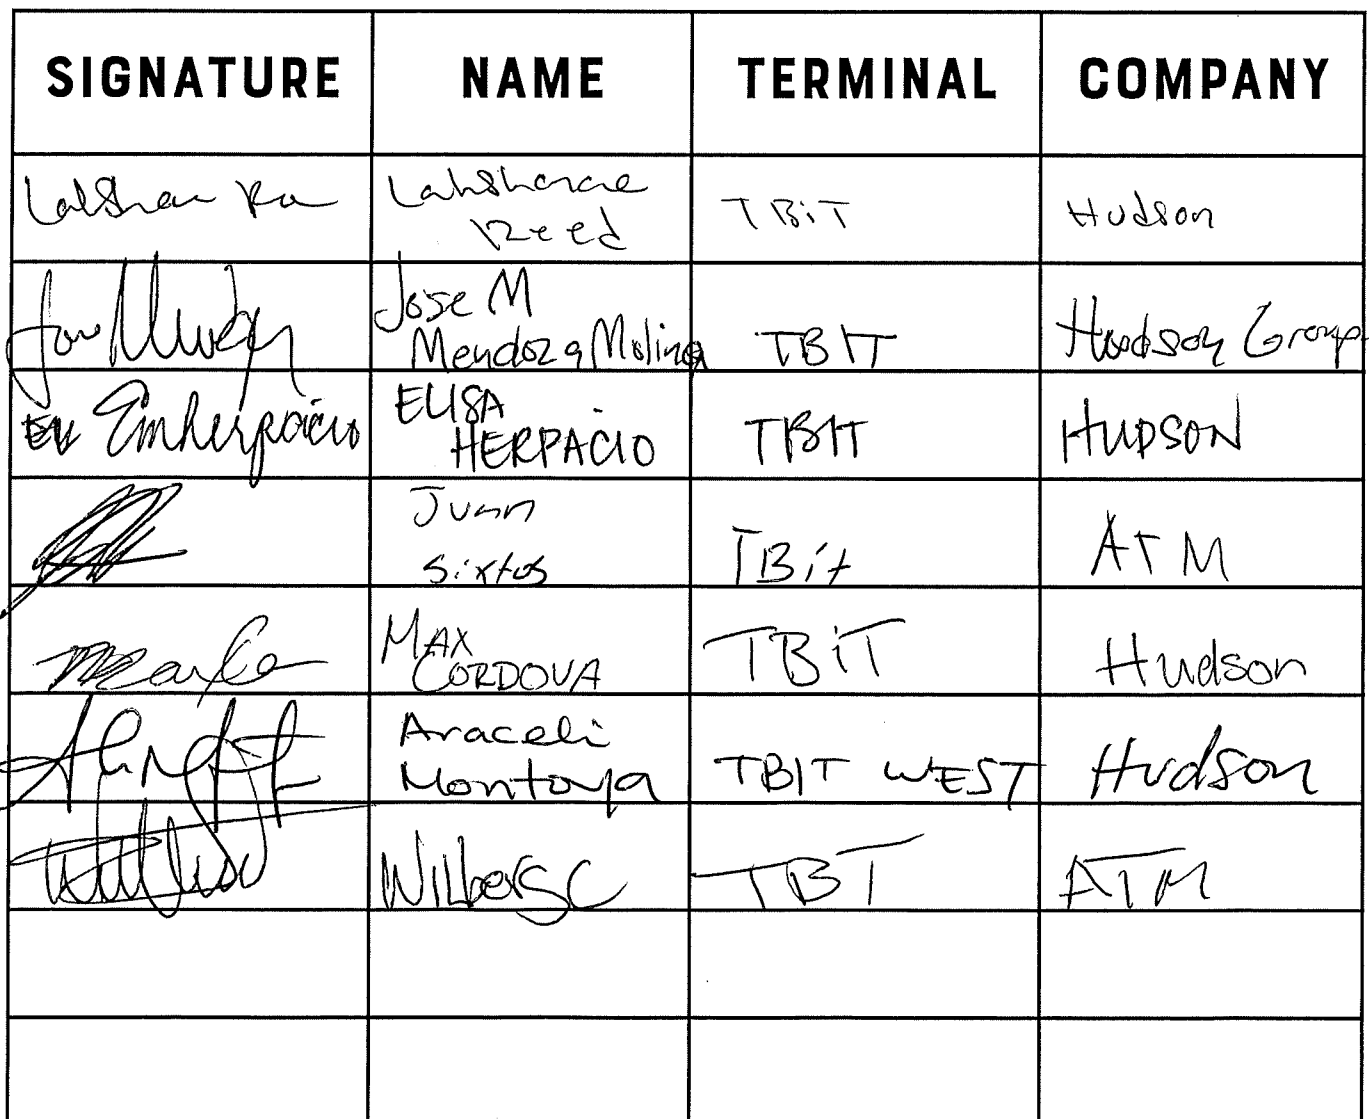 SIGNATURE NAME TERMINAL COMPANY
Lahshanae
Reed
TBiT
Hudson
Jose M
Mendoza Molina
TBIT
Hudson Group
ELISA
HERPACIO
TBIT
HUDSON
Juan
Sixtos
TBit
ATM
MAX
CORDOVA
TBiT
Hudson
Araceli
Montoya
TBIT WEST
Hudson
Wilber S C
TBT
ATM